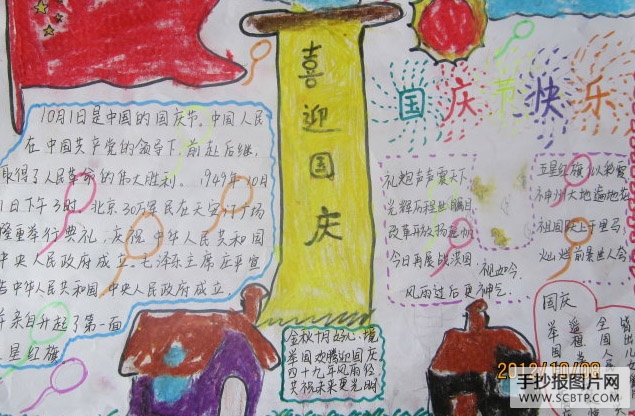 喜迎国庆
国庆节快乐
10月1日是中国的国庆节。中国人民
在中国共产党的领导下,前赴后继,
取得了人民革命的伟大胜利。1949年10月
1日下午3时,北京30万军民在天安门广场
隆重举行典礼,庆祝中华人民共和国
中央人民政府成立。毛泽东主席庄严宣
告中华人民共和国,中央人民政府成立
并亲自升起了第一面
五星红旗
礼炮声声震天下
光辉历程世瞩目
改革开放扬
今日再展
祖如今
风雨过后更神气
五星红旗
神州大地遍地花
祖国跃上千里马
灿烂前景世人夸
金秋十月好心境
举国欢腾迎国庆
四十九年风雨经
共祝未来更光明
国庆
举国
遥祖
全国人
2012/10/08
手抄报图片网
WWW.SCBTP.COM